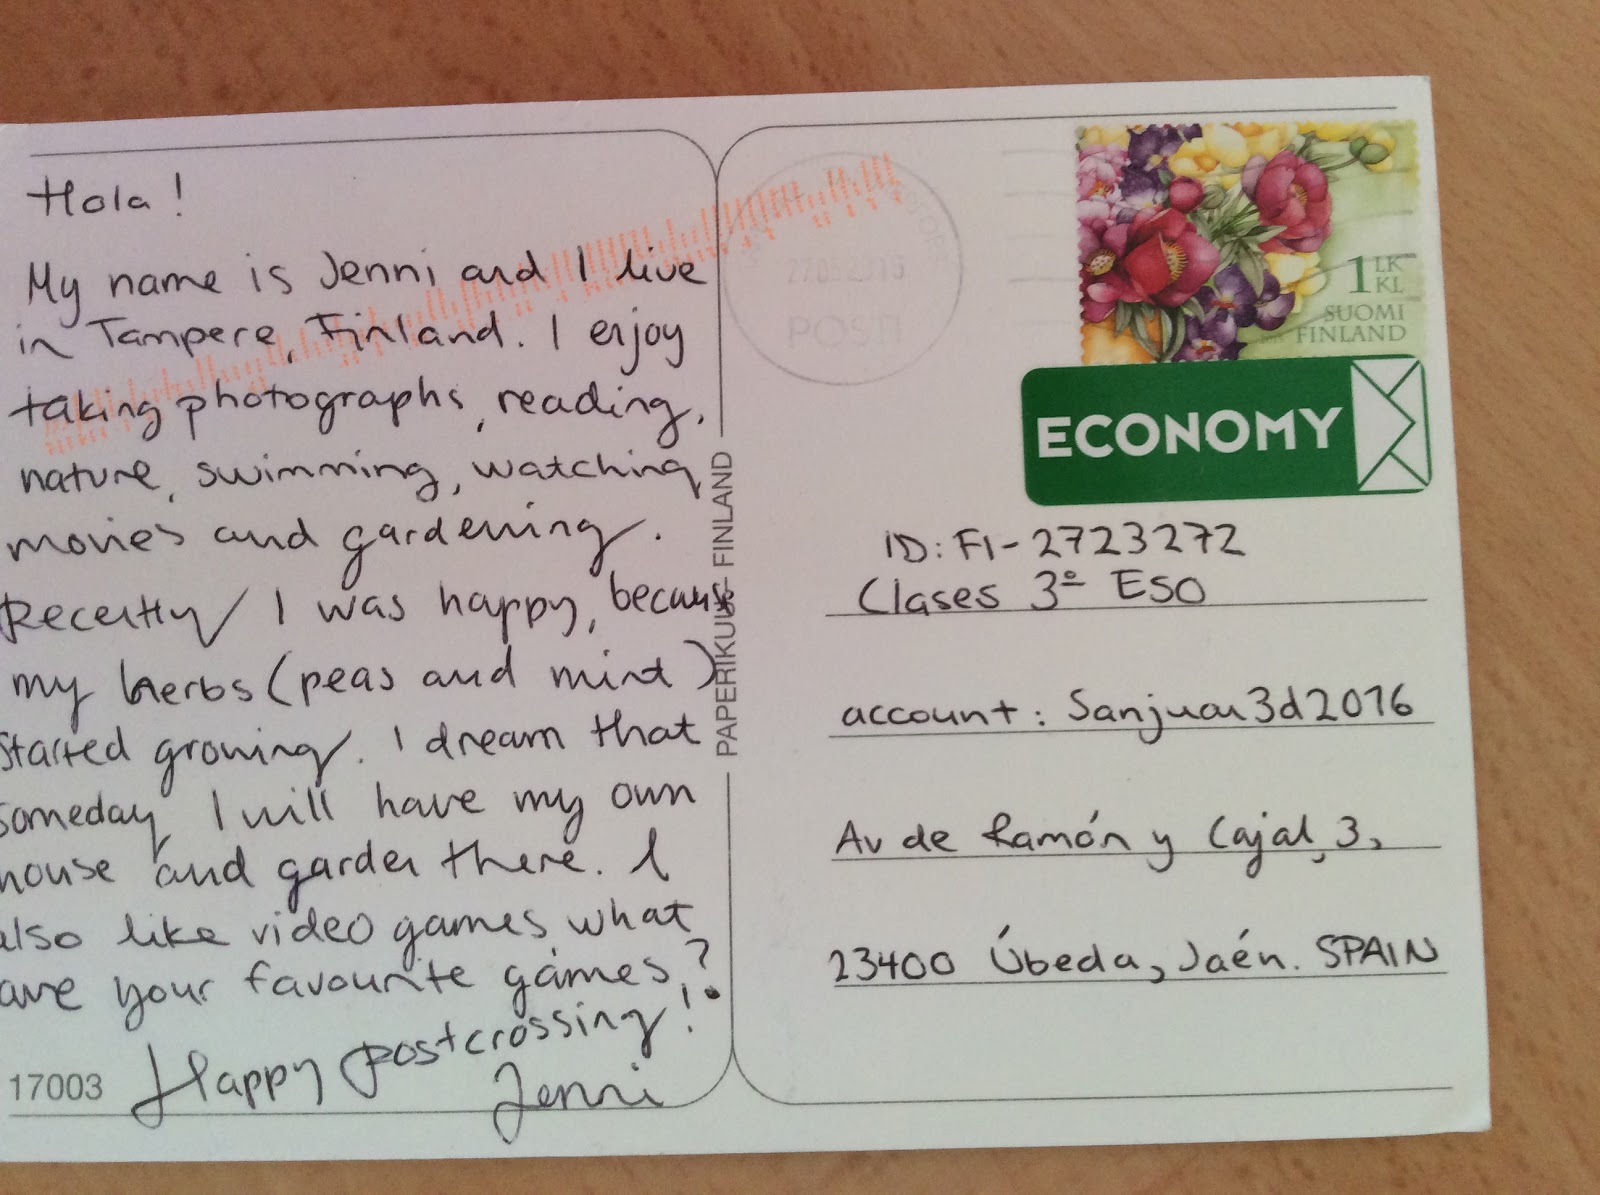 Hola!
My name is Jenni and I live
in Tampere, Finland. I enjoy
taking photographs, reading,
nature, swimming, watching
movies and gardening.
Recently I was happy, because
my herbs (peas and mint)
started growing. I dream that
someday I will have my own
house and garden there. I
also like video games, what
are your favourite games?
Happy postcrossing!
Jenni
17003
PAPERIKUU - FINLAND
POSTI
1 LK
KL
SUOMI
FINLAND
ECONOMY
ID: FI-2723272
Clases 3º ESO
account: Sanjuan3d2016
Av de Ramón y Cajal, 3,
23400 Úbeda, Jaén. SPAIN